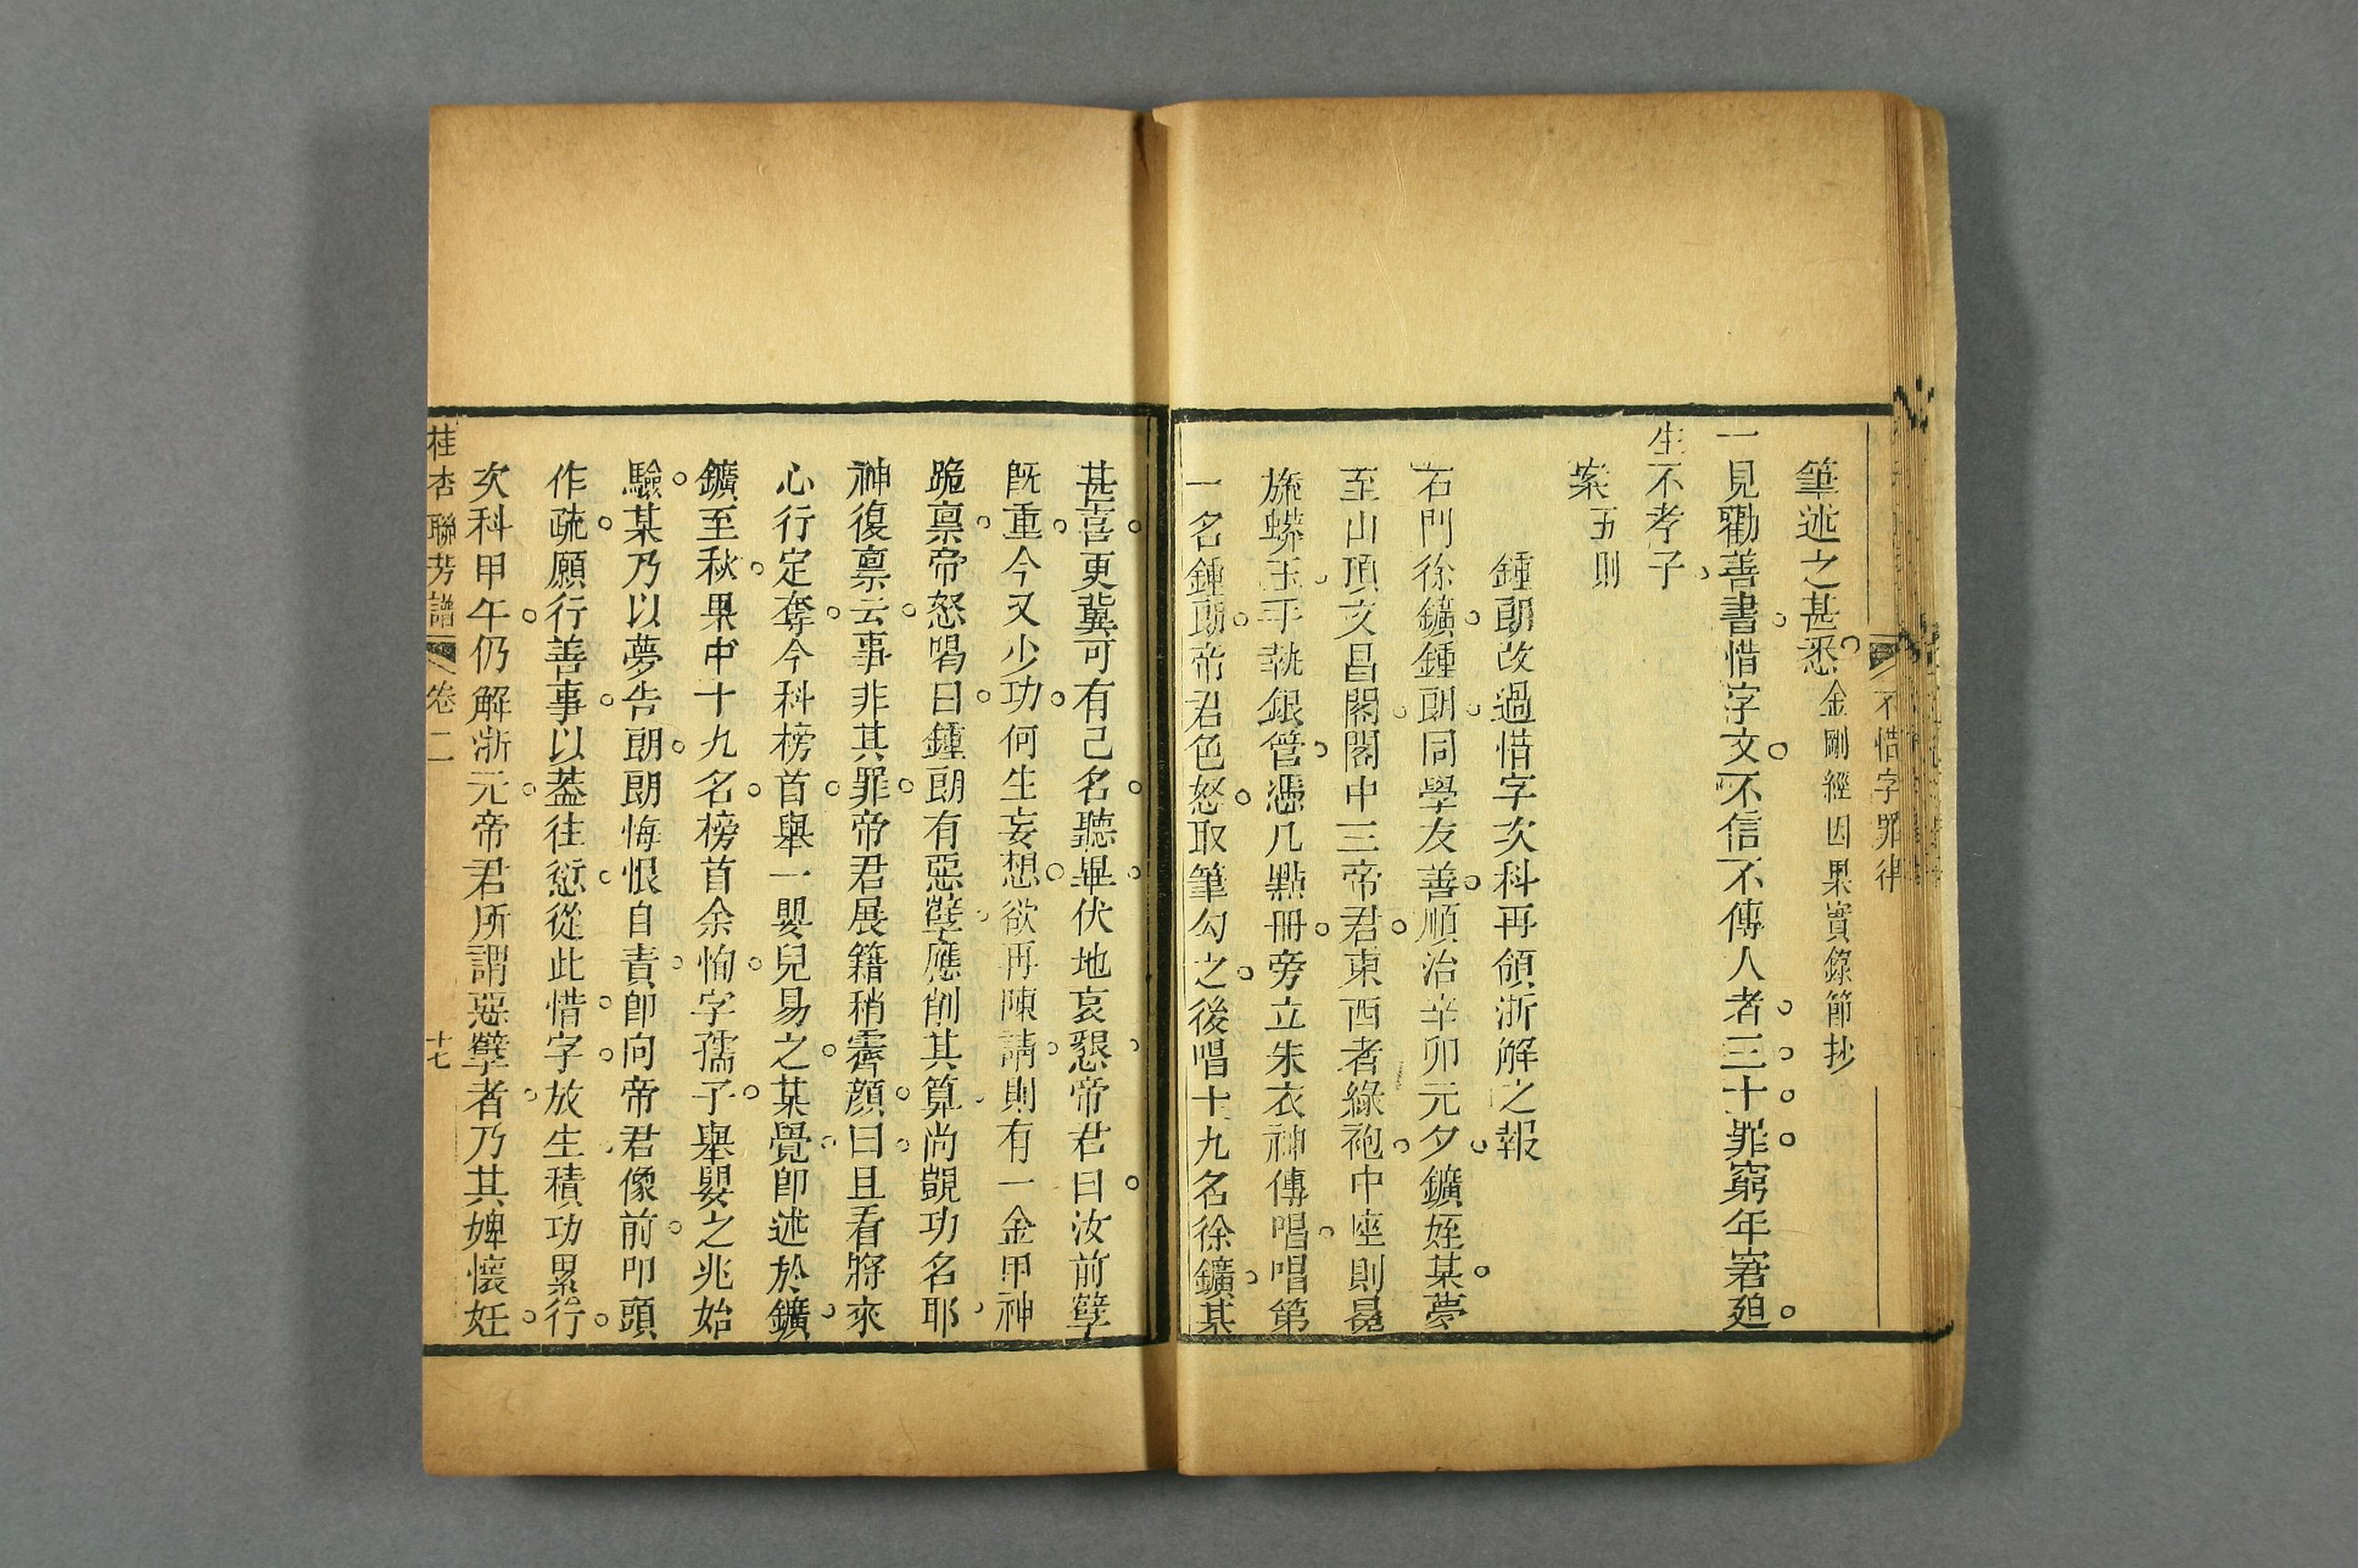 不惜字罪律
筆述之甚悉金剛經因果實錄節抄
一見勸善書惜字文不信不傳人者三十罪窮年窘廹
生不孝子
案五則
鍾朗改過惜字次科再領浙解之報
石門徐鑛鍾朗同學友善順治辛卯元夕鑛姪某夢
至山頂文昌閣閣中三帝君東西者綠袍中座則冕
旒蟒玉手執銀管憑几點冊旁立朱衣神傳唱唱第
一名鍾朗帝君色怒取筆勾之後唱十九名徐鑛某
甚喜更冀可有己名聽畢伏地哀懇帝君曰汝前孽
既重今又少功何生妄想欲再陳請則有一金甲神
跪禀帝怒喝曰鍾朗有惡孽應削其算尚覬功名耶
神復禀云事非其罪帝君展籍稍霽顔曰且看將來
心行定奪今科榜首舉一嬰兒易之某覺卽述於鑛
鑛至秋果中十九名榜首余恂字孺子舉嬰之兆始
驗某乃以夢告朗朗悔恨自責卽向帝君像前叩頭
作疏願行善事以蓋往愆從此惜字放生積功累行
次科甲午仍解浙元帝君所謂惡孽者乃其婢懷妊
桂杏聯芳譜 卷二 十七